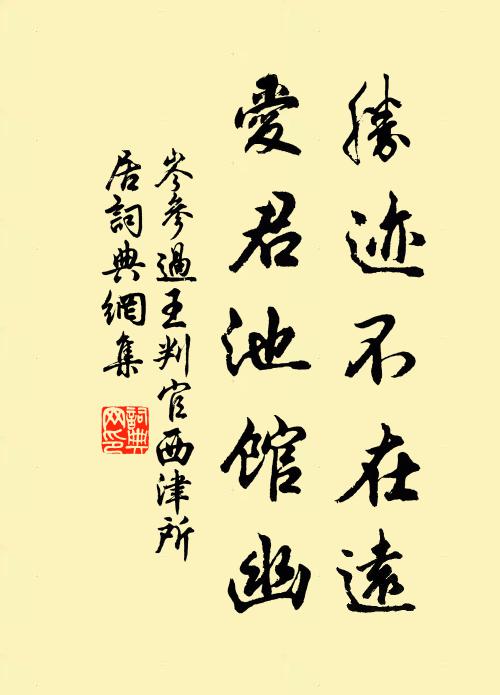 勝迹不在遠
愛君池館幽
岑參過王判官西津所
居詞典網集
詞典
网印